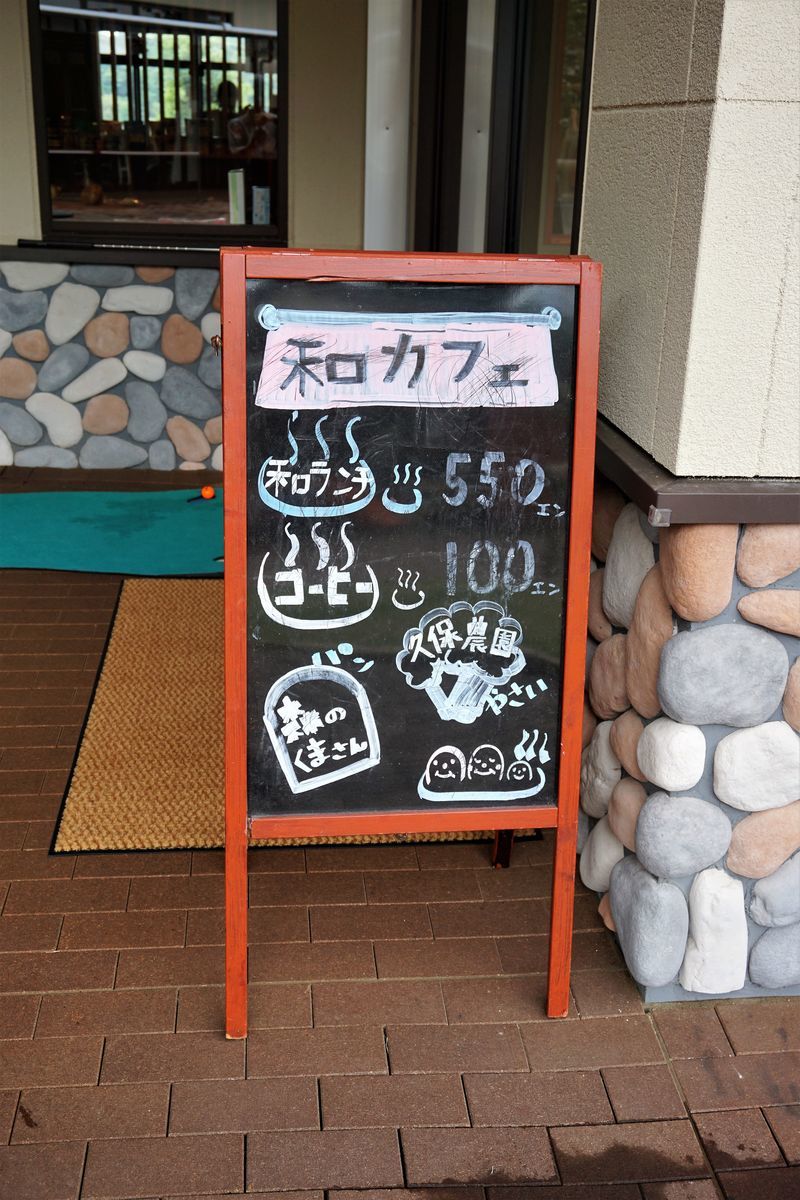 和カフェ
和ランチ 550エン
コーヒー 100エン
久保農園
やさい
パン
森の
くまさん